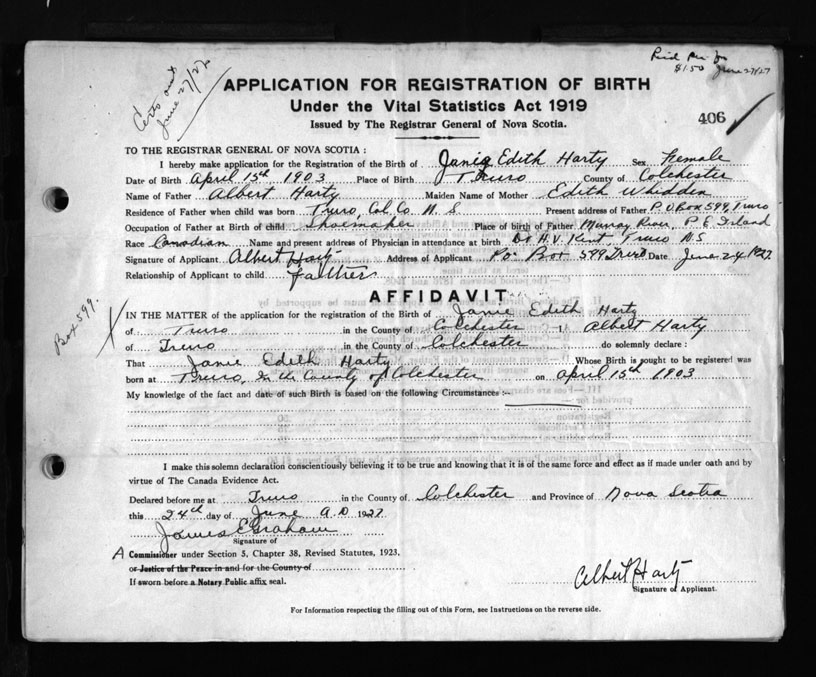 Paid per for
$1.50 June 27/27
Certs out
June 27/27
APPLICATION FOR REGISTRATION OF BIRTH
Under the Vital Statistics Act 1919
Issued by The Registrar General of Nova Scotia.
406
TO THE REGISTRAR GENERAL OF NOVA SCOTIA :
I hereby make application for the Registration of the Birth of Janie Edith Harty Sex Female
Date of Birth April 15th 1903 Place of Birth Truro County of Colchester
Name of Father Albert Harty Maiden Name of Mother Edith Whidden
Residence of Father when child was born Truro, Col. Co. N. S Present address of Father P. O Box 599, Truro
Occupation of Father at Birth of child Shoemaker Place of birth of Father Murray River, P. E. Island
Race Canadian Name and present address of Physician in attendance at birth Dr. H. V. Kent, Truro N.S
Signature of Applicant Albert Harty Address of Applicant Po. Box 599 Truro Date June 24 1927
Relationship of Applicant to child father
AFFIDAVIT
Box 599.
IN THE MATTER of the application for the registration of the Birth of Janie Edith Harty
of Truro in the County of Colchester I, Albert Harty
of Truro in the County of Colchester do solemnly declare :
That Janie Edith Harty Whose Birth is sought to be registered was
born at Truro, In the County of Colchester on April 15th 1903
My knowledge of the fact and date of such Birth is based on the following Circumstances :-
I make this solemn declaration conscientiously believing it to be true and knowing that it is of the same force and effect as if made under oath and by
virtue of The Canada Evidence Act.
Declared before me at Truro in the County of Colchester and Province of Nova Scotia
this 24th day of June A.D 1927
James E Graham
Signature of
A Commissioner under Section 5, Chapter 38, Revised Statutes, 1923.
or Justice of the Peace in and for the County of
If sworn before a Notary Public affix seal.
Albert Harty
Signature of Applicant.
For Information respecting the filling out of this Form, see Instructions on the reverse side.